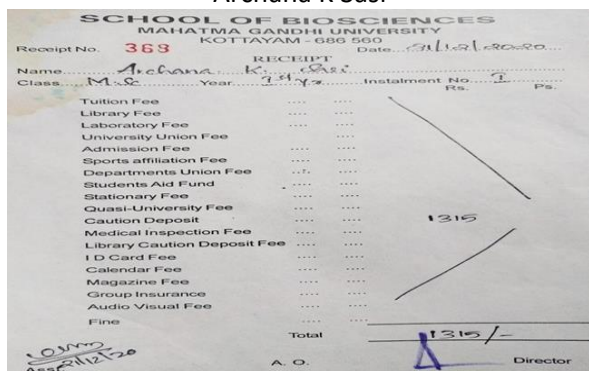 SCHOOL OF BIOSCIENCES
MAHATMA GANDHI UNIVERSITY
KOTTAYAM - 686 560
Receipt No. 368 Date 31/12/2020
RECEIPT
Name Archana K. Sasi
Class M.Sc Year 1st yr Instalment No. I
Rs. Ps.
Tuition Fee
Library Fee
Laboratory Fee
University Union Fee
Admission Fee
Sports affiliation Fee
Departments Union Fee
Students Aid Fund
Stationary Fee
Quasi-University Fee
Caution Deposit 1315
Medical Inspection Fee
Library Caution Deposit Fee
I D Card Fee
Calendar Fee
Magazine Fee
Group Insurance
Audio Visual Fee
Fine
Total 1315/-
A. O. Director